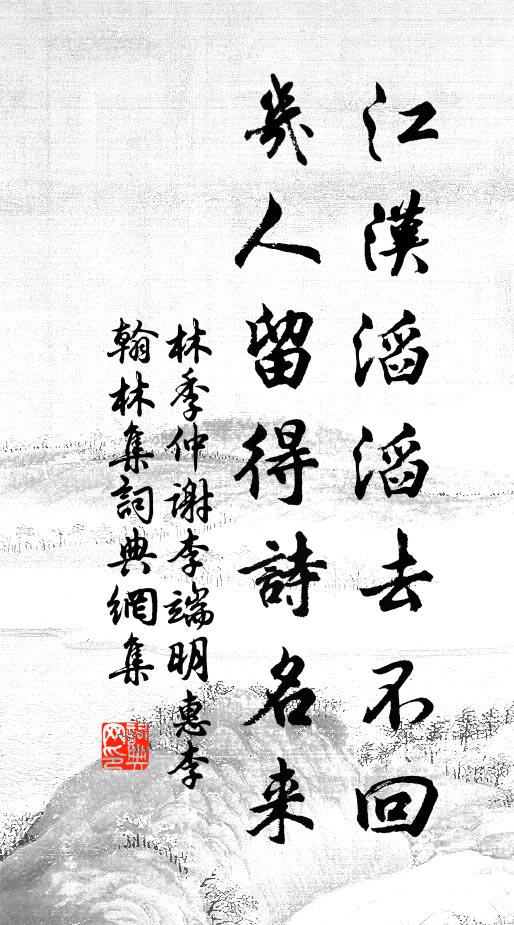 江漢滔滔去不回
幾人留得詩名来
林季仲謝李端明惠李
翰林集詞典網集